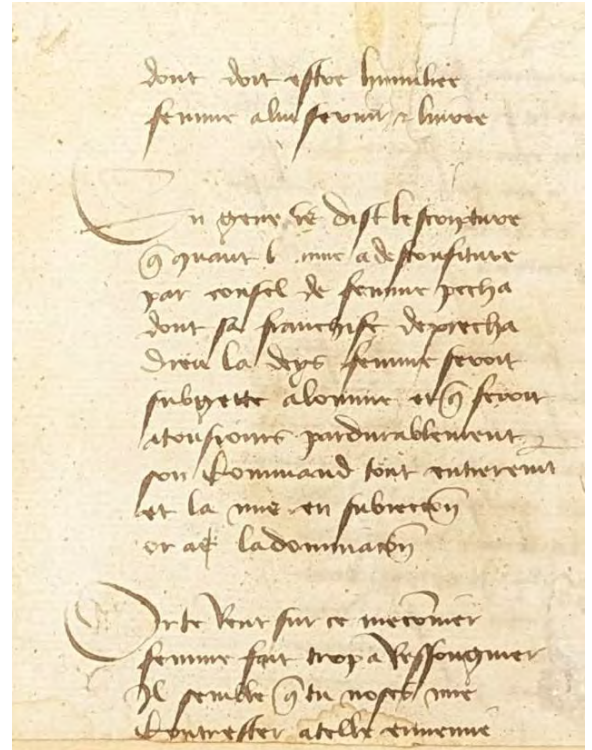 dont doit estre humiliee
femme a lui servir & livree
En gene dist lescripture
q̄ quant l mme a desconfiture
par consel de femme pecha
dont sa franchise deprecha
Dieu la deys femme seroit
subgette a lomme et q̄ seroit
a tousiours pardurablement
son command tout entieremt
et la mis en subiecc̄on
or as la dominac̄on
Or te veut sur ce
femme fait trop a ressongnier
Il semble q̄ tu noses mie
Contrester a telle ennemie